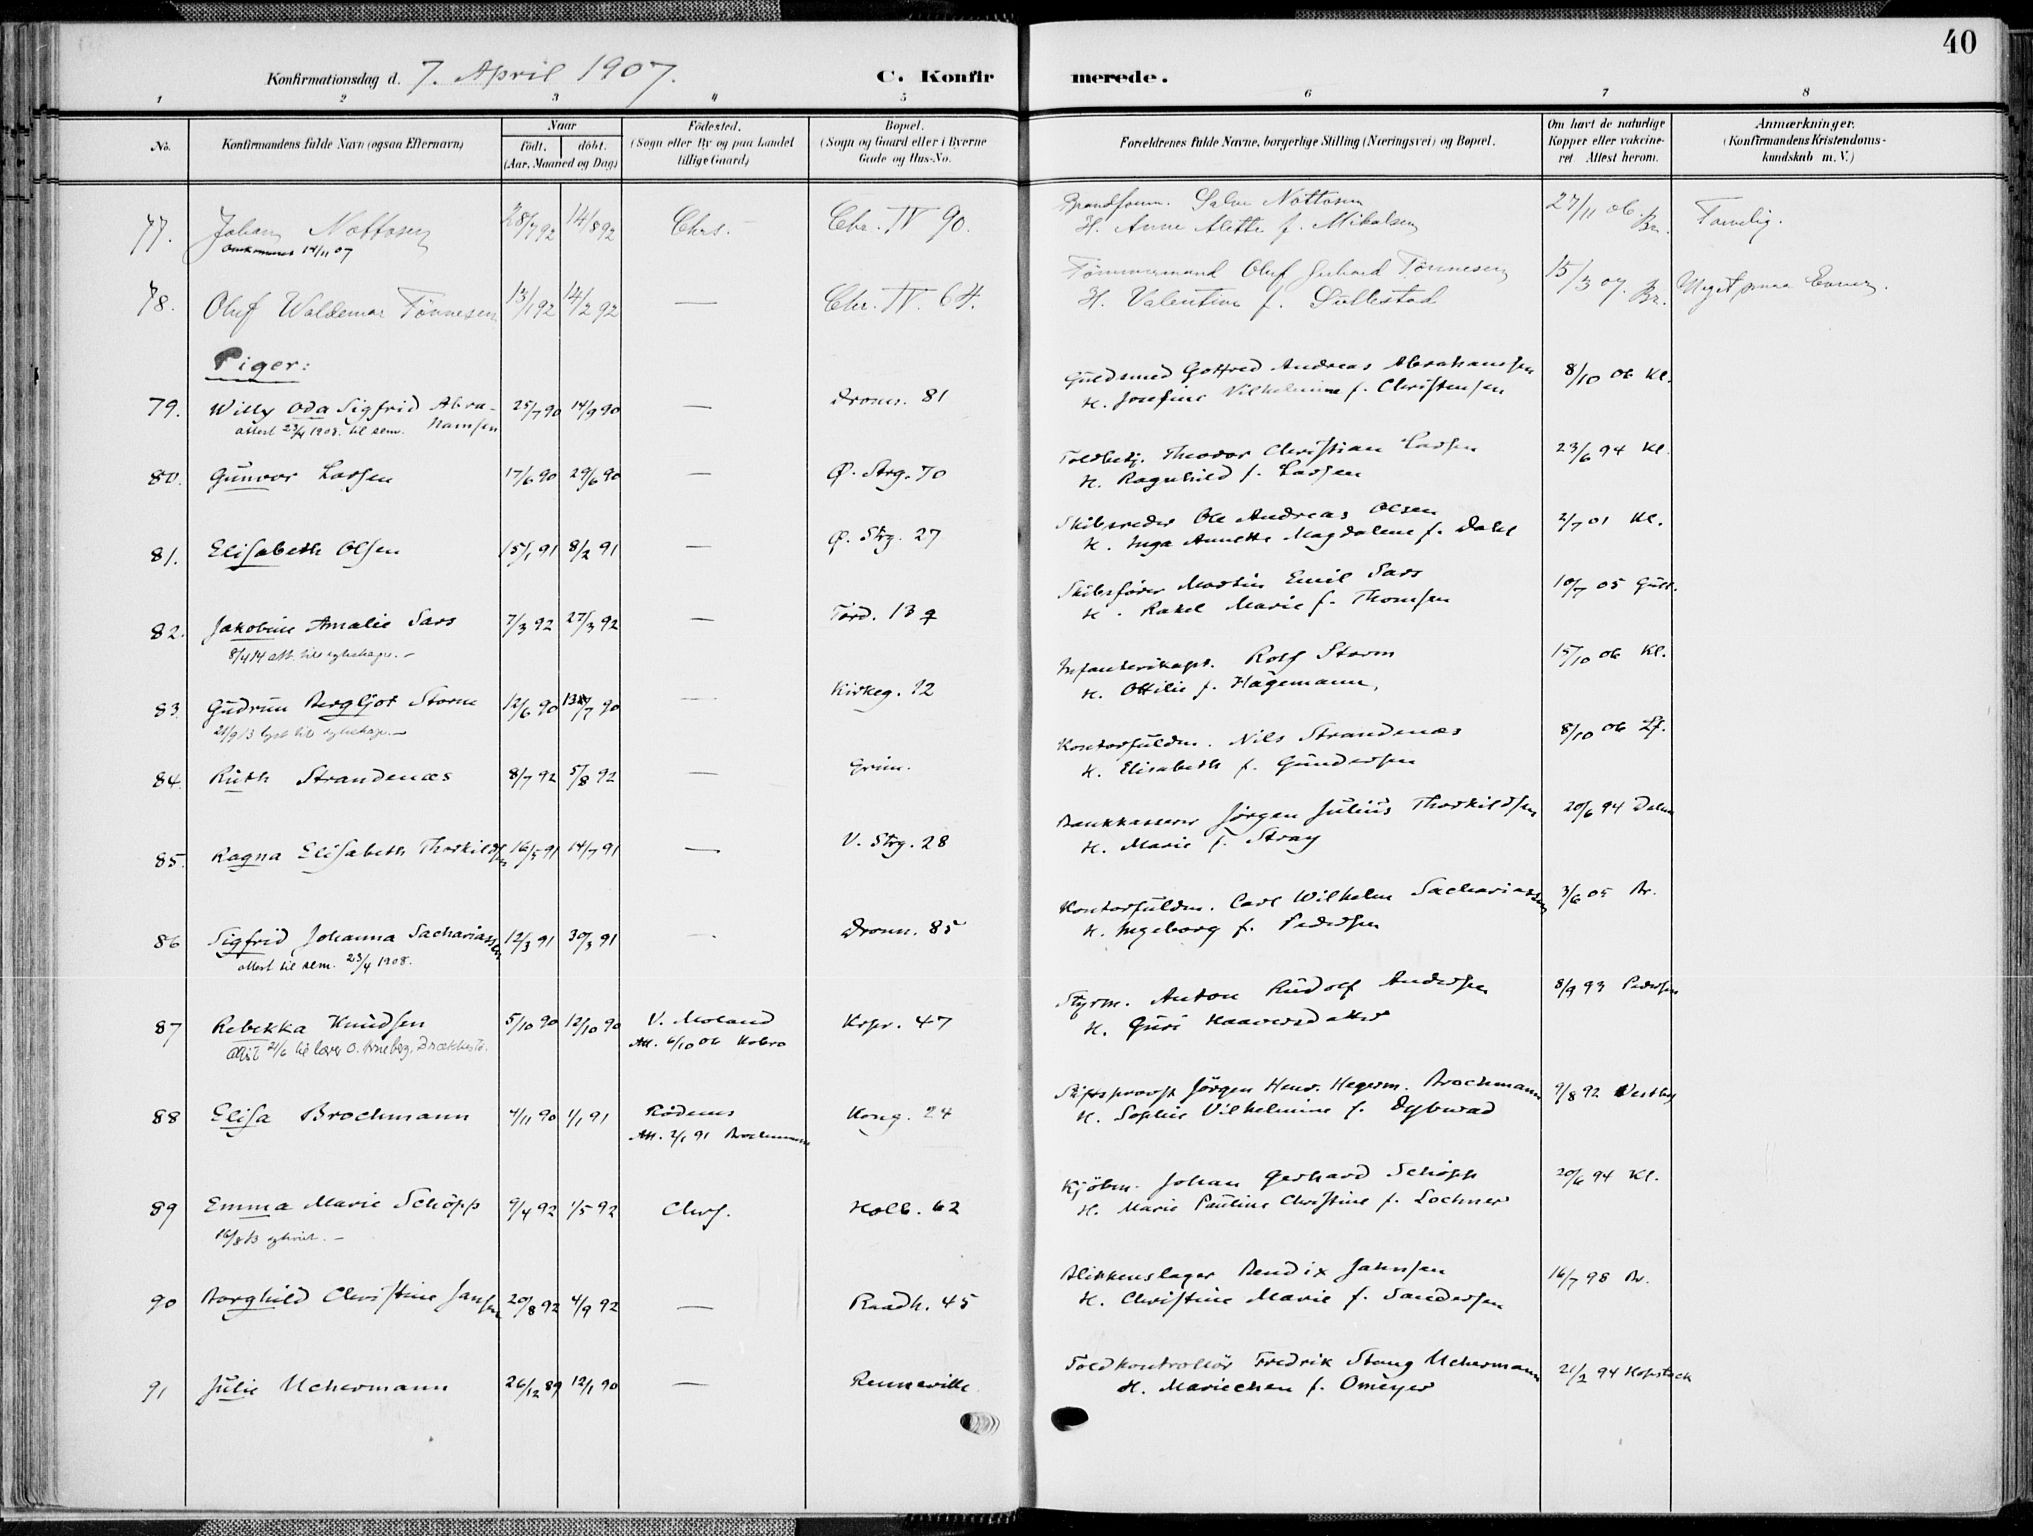 40
Konfirmationsdag d. 7. April 1907.
C. Konfirmerede.
1 2 3 4 5 6 7 8
No.
Konfirmandens fulde Navn (ogsaa Efternavn)
Naar
födt. döbt.
(Aar, Maaned og Dag)
Födested.
(Sogn eller By og paa Landet
tillige Gaard)
Bopæl.
(Sogn og Gaard eller i Byerne
Gade og Hus-No.
Forældrenes fulde Navne, borgerlige Stilling (Næringsvei) og Bopæl.
Om havt de naturlige
Kopper eller vakcine-
ret Attest herom.
Anmærkninger.
(Konfirmandens Kristendoms-
kundskab m. V.)
77. Johan Nottosen 28/7 92 14/8 92 Chrs. Chr. IV 90. Salve Nottosen 27/11 06. Br. Tarvelig.
Omkommet 14/11 07
H. Anne Alette f. Mikalsen
78. Oluf Waldemar Tönnesen 13/1 92 14/2 92 — Chr. IV. 64. Tömmermand Oluf Gerhard Tönnesen 15/3 07. Br. Meget smaa Evner.
H. Valentine f. Sullestad
Piger:
79. Willy Oda Sigfrid Abra-
hamsen 25/7 90 14/9 90 — Dronn. 81 Guldsmed Gotfred Andreas Abrahamsen 8/10 06 Kl.
attest 23/4 1908. til sem.
H. Josefine Vilhelmine f. Christensen
80. Gunvor Larsen 17/6 90 29/6 90 — Ø. Strg. 70 Toldbetj. Theodor Christian Larsen 23/6 94 Kl.
H. Ragnhild f. Larsen
81. Elisabeth Olsen 15/1 91 8/2 91 — Ø. Strg. 27 Skibsreder Ole Andreas Olsen 2/7 01 Kl.
H. Inga Annette Magdalene f. Dahl
82. Jakobine Amalie Sars 7/3 92 27/3 92 — Tord. 13 Skibsfører Martin Emil Sars 10/7 05 Gull.
8/4 14 att.
H. Rakel Marie f. Thomsen
83. Gudrun Bergljot Storm 12/6 90 13/7 90 — Kirkeg. 12 Infanterikapt. Rolf Storm 15/10 06 Kl.
H. Ottilie f. Hagemann,
84. Ruth Strandenæs 8/7 92 5/8 92 — Grim. Kontorfuldm. Nils Strandenæs 8/10 06 Lf.
H. Elisabeth f. Gundersen
85. Ragna Elisabeth Thorkildsen 16/5 91 14/7 91 — V. Strg. 28 Bankkasserer Jörgen Julius Thorkildsen 20/6 94
H. Marie f. Stray
86 Sigfrid Johanna Sachariassen 12/3 91 30/3 91 — Dronn. 85 Kontorfuldm. Carl Wilhelm Sachariassen 3/6 05 Br.
attest til sem. 23/4 1908.
H. Ingeborg f. Pedersen
87 Rebekka Knudsen 5/10 90 12/10 90 V. Moland Krpr. 47 Styrm. Anton Rudolf Andersen 8/9 93 Pedersen
Att. 6/10 06
H. Guri Haaversdatter
88 Elisa Brochmann 4/11 90 1/1 91 Rödenes Kong. 24 Stiftsprovst Jörgen Henr. Hegerm. Brochmann 9/8 92 Vestby
Att. 2/1 91 Brochmann
H. Sophie Vilhelmine f. Dybwad
89 Emma Marie Schöpp 9/4 92 1/5 92 Chrs. Holb. 62 Kjöbm. Johan Gerhard Schöpp 20/6 94 Kl.
H. Marie Pauline Christine f. Lochner
90 Borghild Christine Jansen 20/8 92 4/9 92 — Raadh. 45 Blikkenslager Bendix Jahnsen 16/7 98 Br.
H. Christine Marie f. Sandersen
91 Julie Uchermann 26/12 89 12/1 90 — Renneville Toldkontrollör Fredrik Stang Uchermann 21/2 94 Hopstock
H. Mariechen f. Omeyer